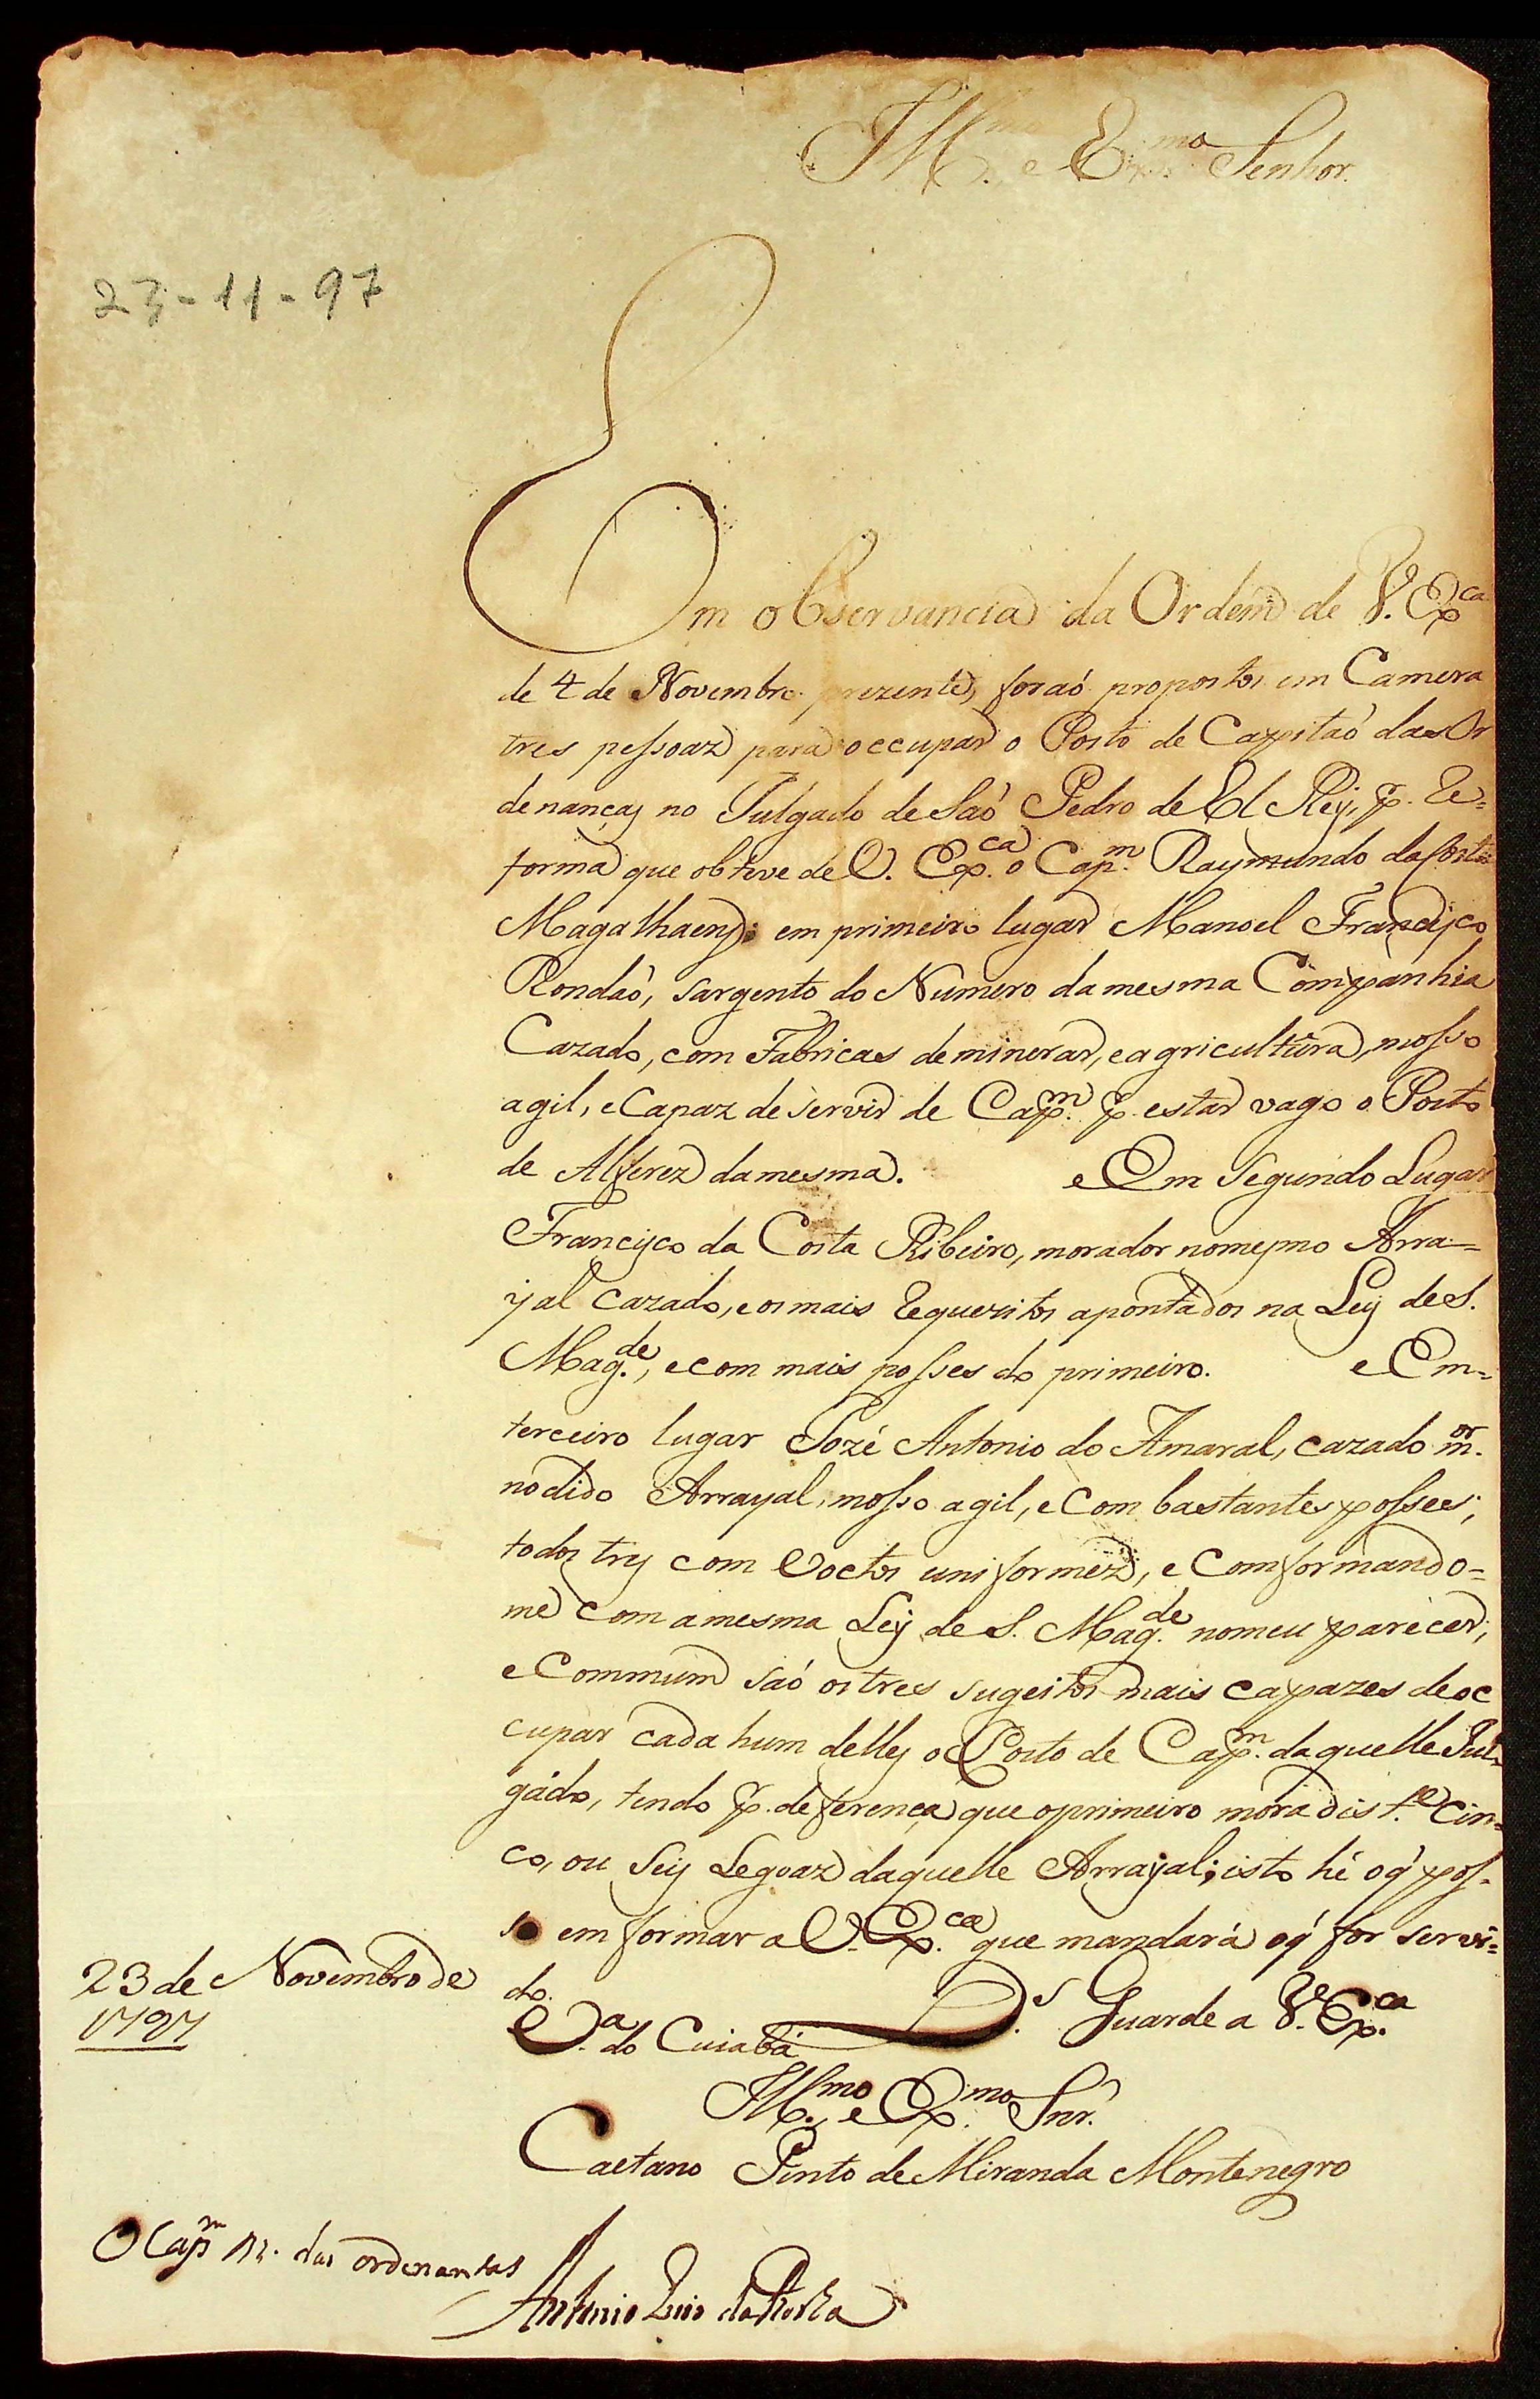 Ill.mo e Ex.mo Senhor.
23-11-97
Em observancia da Ordem de V. Ex.ca
de 4 de Novembro prezente, foraó propostos em Camera
tres pessoaz para occupar o Posto de Capitaó das Or
denanças no Julgado de Saó Pedro de El Rey, p. Re=
forma que obteve de V. Ex.ca o Cap.m Raymundo da Costa
Magalhaens: em primeiro lugar Manoel Francisco
Rondaó, sargento do Numero da mesma Companhia
Cazado, com Fabricas de minerar, e agricultura, mosso
agil, e Capaz de servir de Cap.m p. estar vago o Posto
de Alferez da mesma. e Em Segundo Lugar
Francisco da Costa Ribeiro, morador no mesmo Arra=
yal cazado, e os mais Requezitos apontados na Ley de S.
Mag.de, e com mais posses do primeiro. e Em=
terceiro lugar Jozé Antonio do Amaral, cazado m.or
no dido Arrayal, mosso agil, e Com bastantes posses;
todos tres com Voctos uniformez, e Comformando=
me com a mesma Ley de S. Mag.de no meu parecer,
e Commum saó os tres sugeitos mais capazes de oc
cupar cada hum delles o Posto de Cap.m daquelle Jul=
gádo, tendo p. deferença que o primeiro mora dist.e Cin=
co, ou Seis Legoaz daquelle Arrayal; isto hé o q' pos=
so emformar a V. Ex.ca que mandará o q' for servi=
do.
23 de Novembro de
1797
V.a do Cuiabá D.s Guarde a V. Ex.ca
Ill.mo e Ex.mo Snr.
Caetano Pinto de Miranda Montenegro
O Cap.m M. das ordenansas
Antonio Luis da Rocha